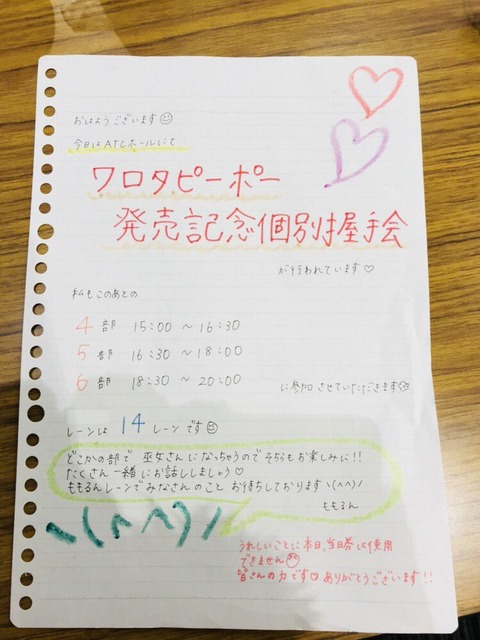 おはようございます☺
今日はATCホールにて
ワロタピーポー
発売記念個別握手会
が行われています♡
私もこのあとの
4部 15:00 〜 16:30
5部 16:30 〜 18:00
6部 18:30 〜 20:00
に参加させていただきます☺
レーンは 14 レーンです☺
どこかの部で 巫女さんになっちゃうのでそちらもお楽しみに!!
たくさん一緒にお話ししましょう♡
ももるんレーンでみなさんのこと お待ちしております ヽ(^^)ノ
ももるん
ヽ(^^)ノ
うれしいことに本日、当日券は使用
できません☺
皆さんの力です♡ ありがとうございます!!